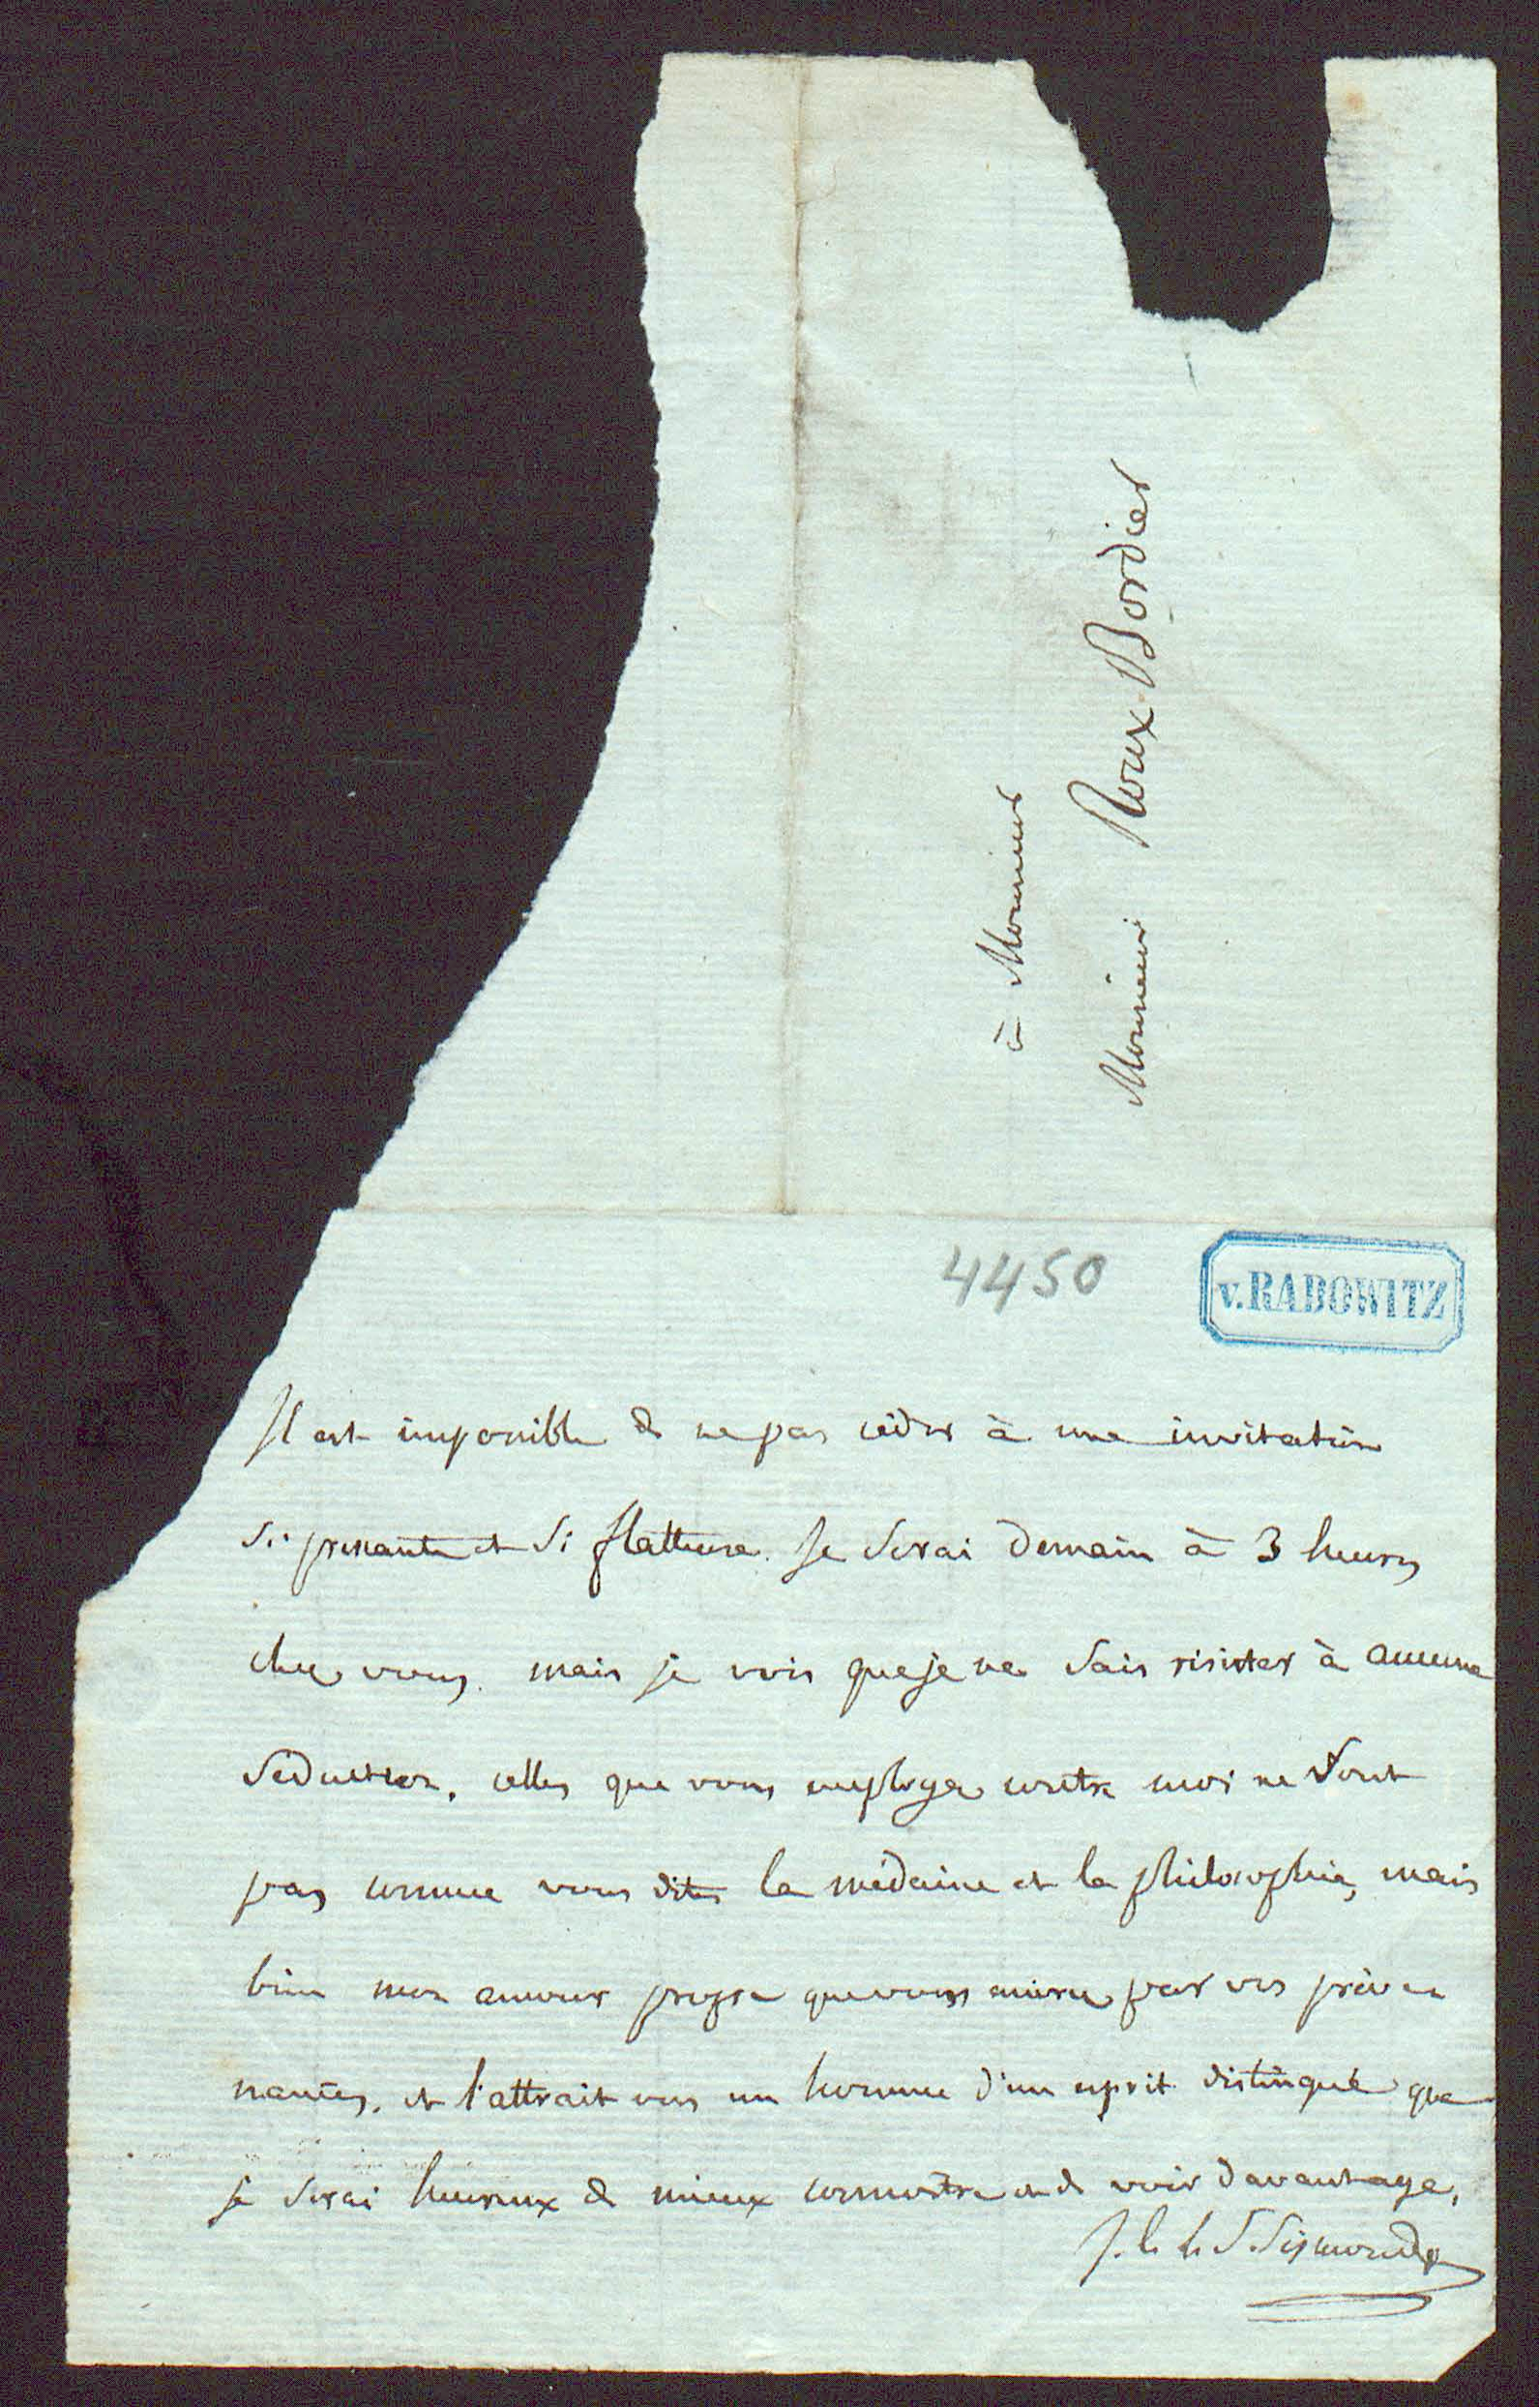 à Monsieur
Monsieur Roux-Bordier
4450
v. RADOWITZ
Il est impossible de ne pas céder à une invitation
si pressante et si flatteuse. Je serai demain à 3 heures
chez vous. mais je vois que je ne sais résister à aucune
séduction. celles que vous employez contre moi ne sont
pas comme vous dites la médecine et la philosophie, mais
bien mon amour propre que vous par vos préve
nances, et l'attrait vers un homme d'un esprit distingué que
je serai heureux de mieux connoître et de voir davantage.
J. C. L. S. Sismondi